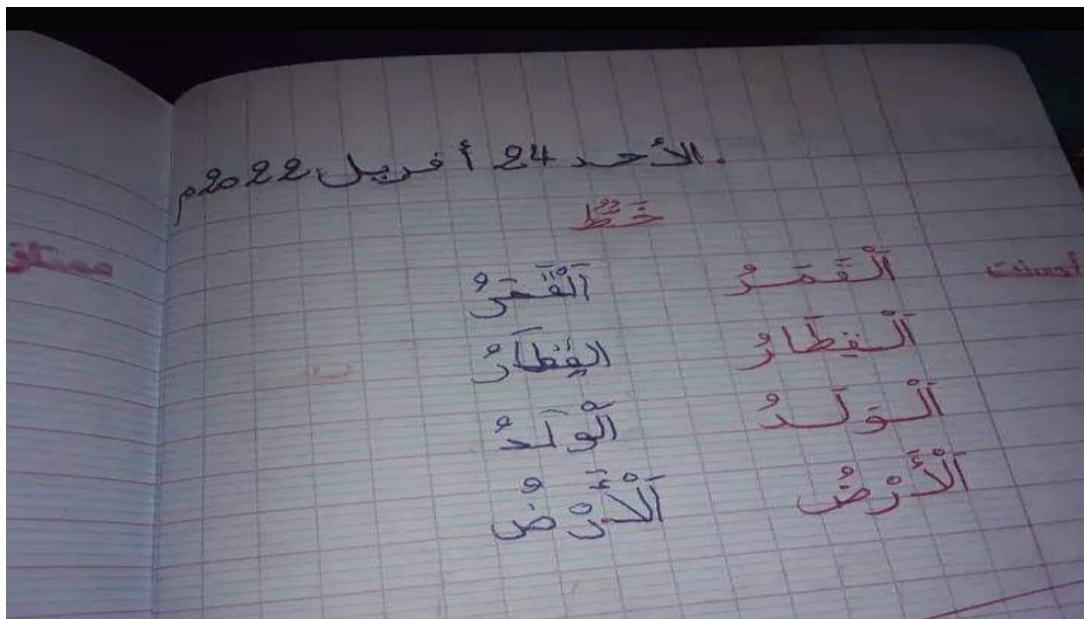 الأحد 24 أفريل 2022م
خَطٌّ
أحسنت
اَلْقَمَرُ اَلْقَمَرُ
اَلْقِطَارُ القِطَارُ
اَلْوَلَدُ اَلْوَلَدُ
اَلْأَرْضُ اَلْأَرْضُ
ممتاز